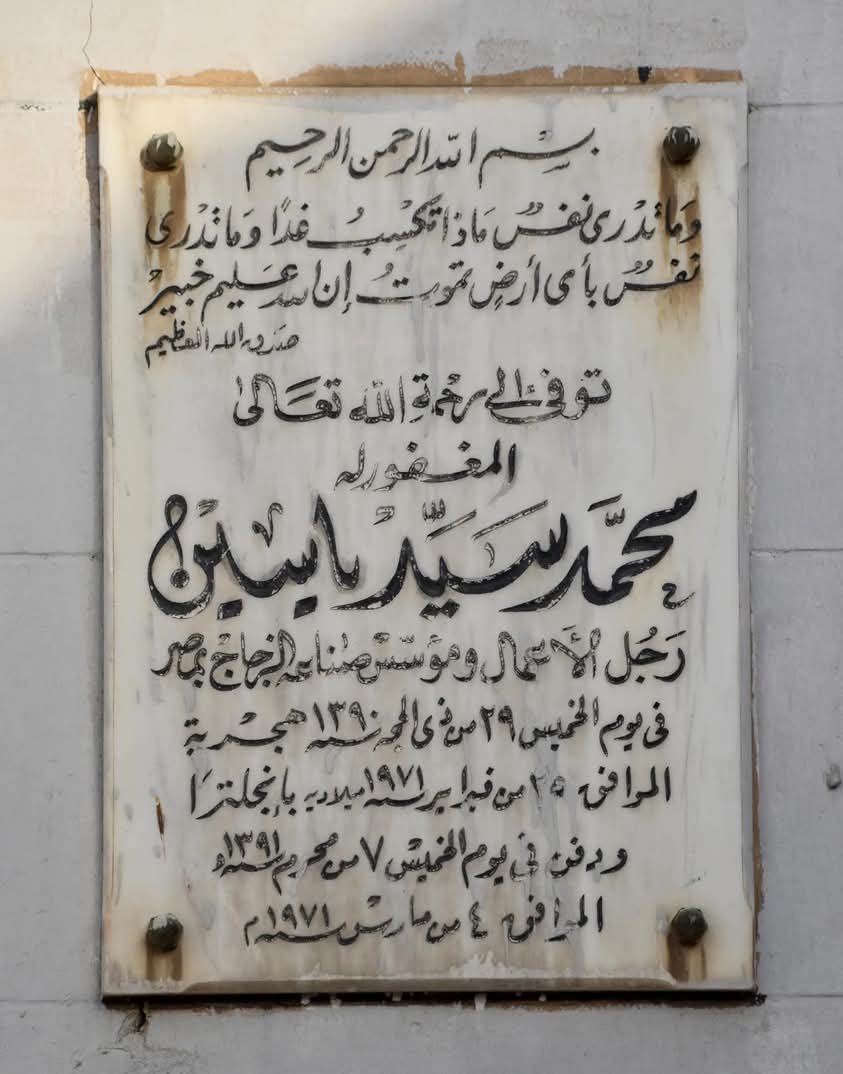 بسم الله الرحمن الرحيم
وَمَا تَدْرى نفسٌ مَاذا تكسِبُ غدًا وَمَا تَدْرى
نفسٌ بأى أرضٍ تموتُ إن الله عَليم خبيرٌ
صدق الله العظيم
توفى إلى رحْمة الله تعَالى
المغفور له
محمَّد سيِّد ياسين
رَجُل الأعمال ومؤسّس صناعة الزجاج بمصر
فى يوم الخميس ٢٩ من ذى الحجة سنة ١٣٩٠ هجرية
الموافق ٢٥ من فبراير سنة ١٩٧١ ميلادية بإنجلترَا
ودفن فى يوم الخميس ٧ من محرم سنة ١٣٩١ه
الموافق ٤ من مارس سنة ١٩٧١م